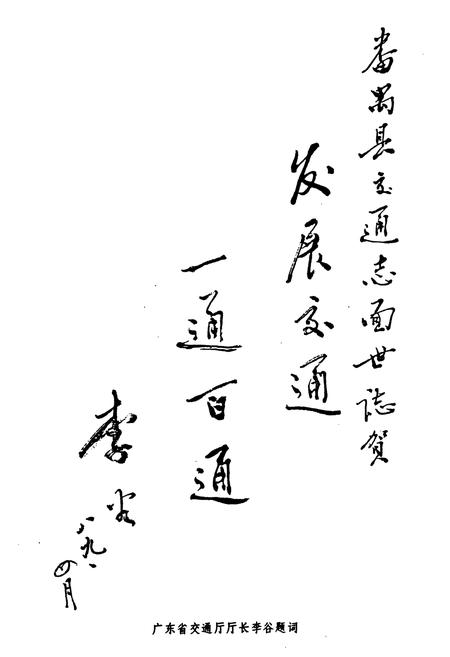 番禺县交通志面世誌贺
发展交通
一通百通
李谷
八九、四月
广东省交通厅厅长李谷题词